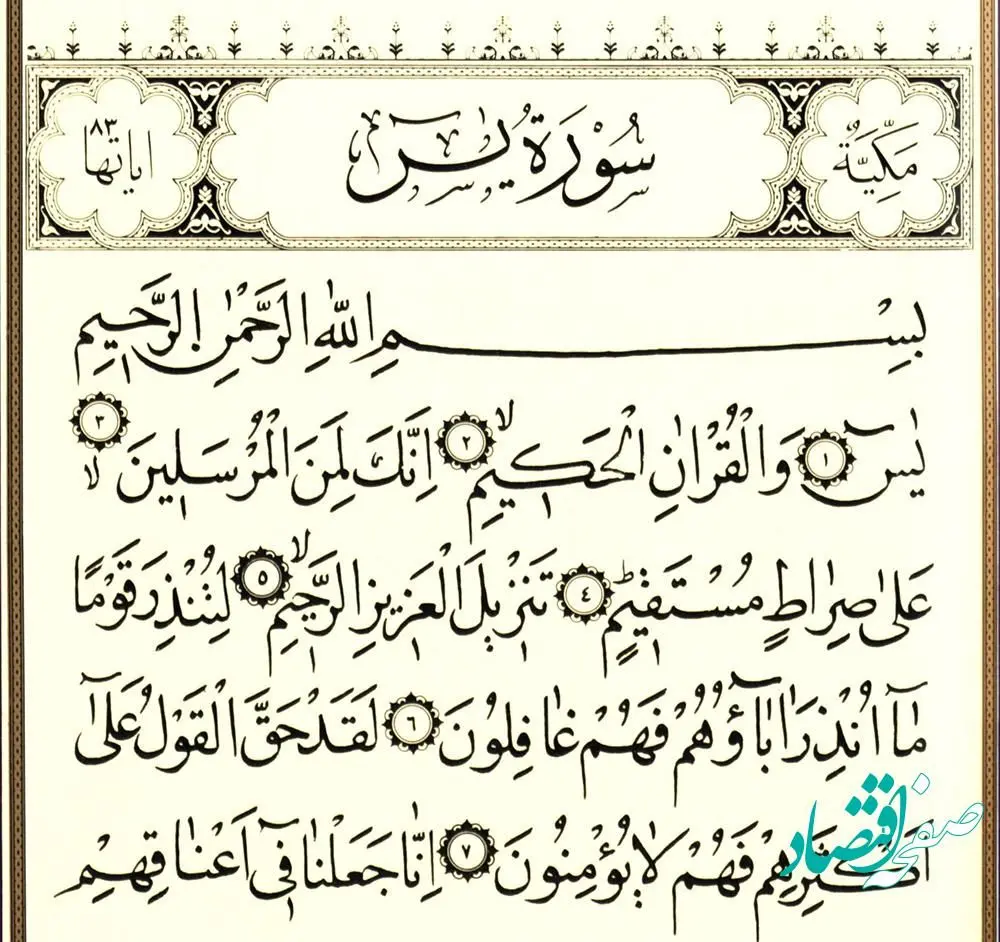 مَكِّيَّةٌ
سُوْرَةُ يٰسٓ
اياتها ٨٣
بِسْمِ اللّٰهِ الرَّحْمٰنِ الرَّحيمِ
يٰسٓ ﴿١﴾ وَالْقُرْاٰنِ الْحَكيمِ ﴿٢﴾ اِنَّكَ لَمِنَ الْمُرْسَلينَ ﴿٣﴾
عَلٰى صِرَاطٍ مُسْتَقيمٍ ﴿٤﴾ تَنْزيلَ الْعَزيزِ الرَّحيمِ ﴿٥﴾ لِتُنْذِرَ قَوْمًا
مَٓا اُنْذِرَ اٰبَٓاؤُهُمْ فَهُمْ غَافِلُونَ ﴿٦﴾ لَقَدْ حَقَّ الْقَوْلُ عَلٰٓى
اَكْثَرِهِمْ فَهُمْ لَا يُؤْمِنُونَ ﴿٧﴾ اِنَّا جَعَلْنَا فٓى اَعْنَاقِهِمْ
صفحه اقتصاد